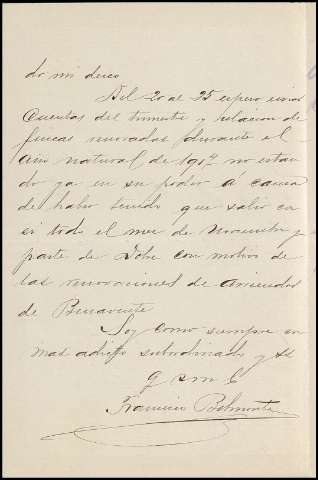 do mi deseo
Del 20 al 25 espero enviar
Cuentas del trimestre y relacion de
fincas renovadas durante el
año natural de 1917 no estan
do ya en su poder á causa
de haber tenido que salir ca
si todo el mes de Noviembre y
parte de Dbre con motivo de
las renovaciones de arriendos
de Benavente
Soy como siempre su
mas adicto subordinado y ss
q s m b
Francisco Belmonte